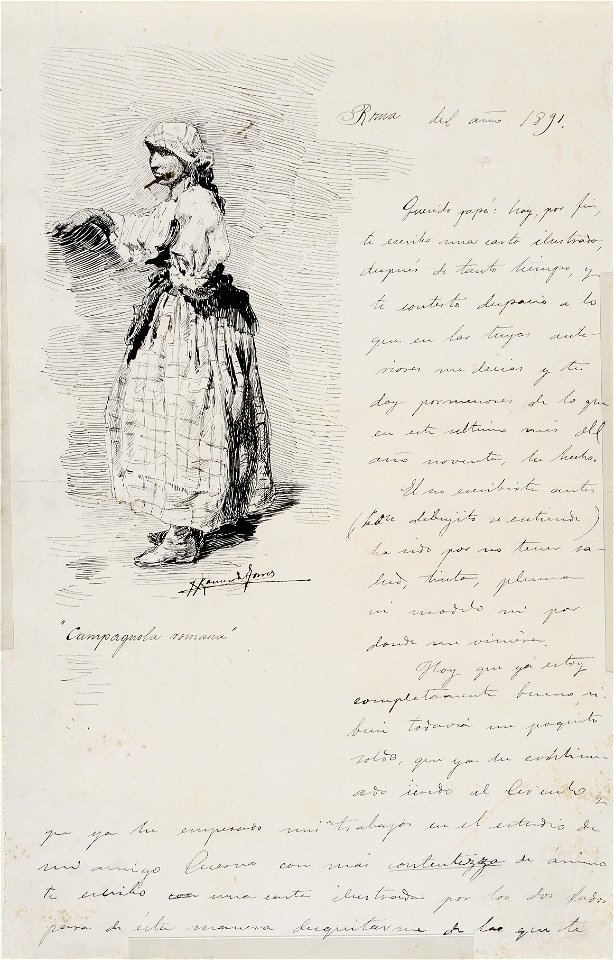 Roma del año 1891.
Querido papá: hoy, por fin,
te escribo una carta ilustrada,
después de tanto tiempo, y
te contesto despacio a lo
que en las tuyas ante-
riores me decías y te
doy pormenores de lo que
en este último mes del
año noventa, he hecho.
El no escribirte antes
(con dibujito se entiende)
ha sido por no tener sa-
lud, tinta, pluma
ni modelo ni por
donde me viniera.
"Campagnola romana"
Hoy que yá estoy
completamente bueno,
bien todavía un poquito
que ya he
que ya he empezado mis trabajos en el estudio de
mi amigo Cuervo con más contentezza de ánimo
te escribo una carta ilustrada por los dos lados
para de ésta manera desquitarme de las que te